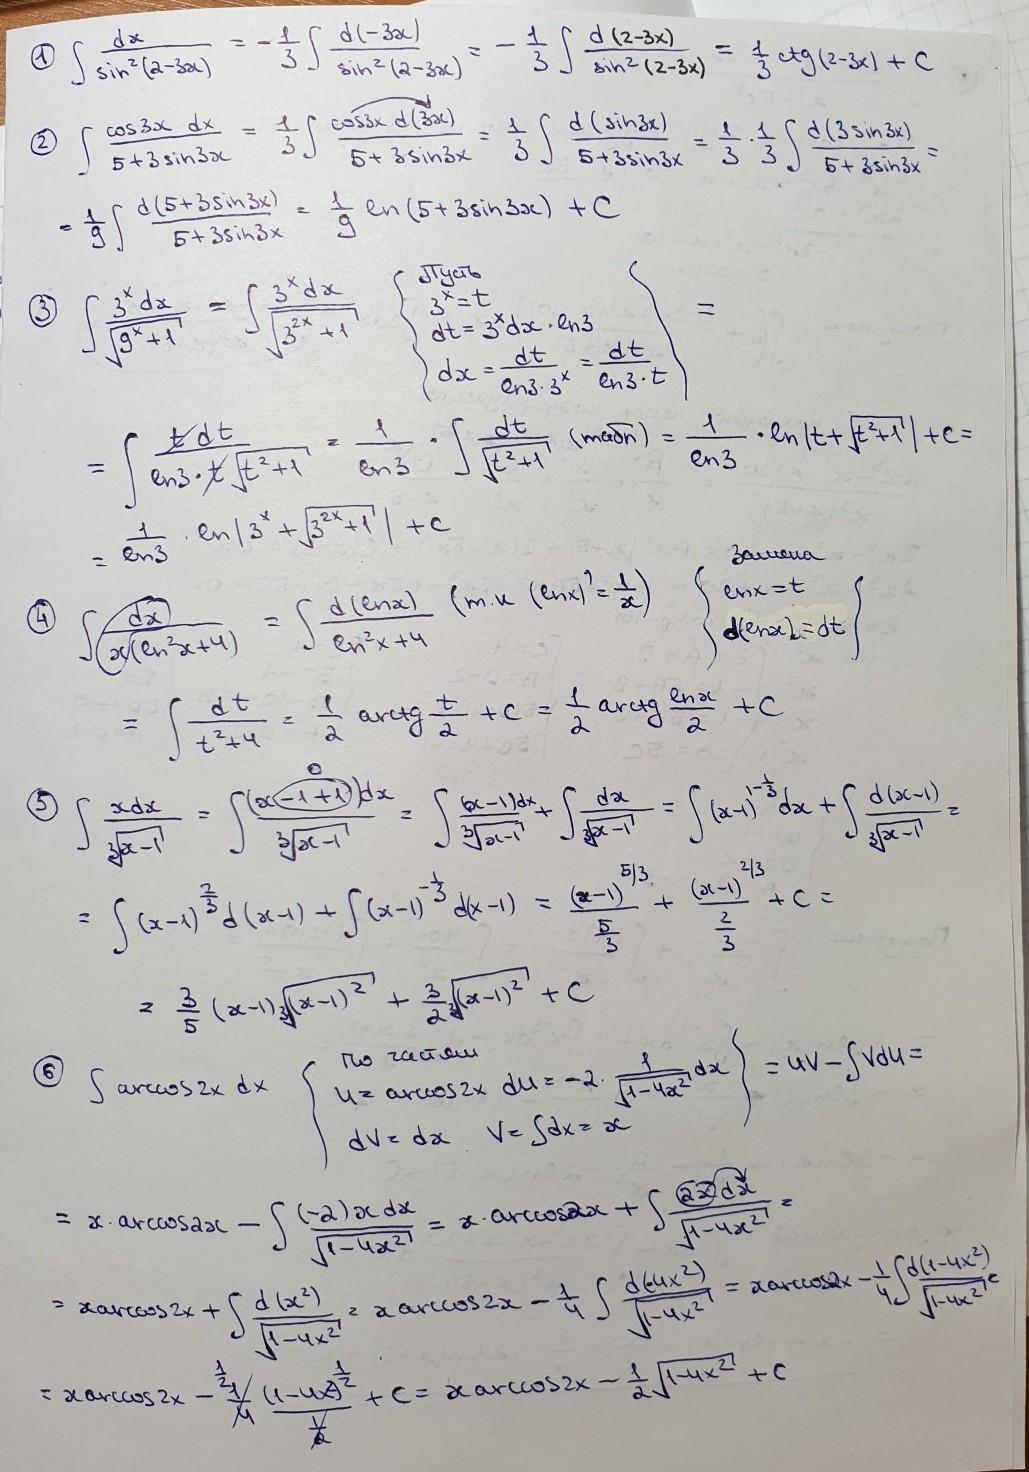 ① ∫ dx / sin²(2-3x) = -1/3 ∫ d(-3x) / sin²(2-3x) = -1/3 ∫ d(2-3x) / sin²(2-3x) = 1/3 ctg(2-3x) + C
② ∫ cos3x dx / (5+3sin3x) = 1/3 ∫ cos3x d(3x) / (5+3sin3x) = 1/3 ∫ d(sin3x) / (5+3sin3x) = 1/3 · 1/3 ∫ d(3sin3x) / (5+3sin3x) =
= 1/9 ∫ d(5+3sin3x) / (5+3sin3x) = 1/9 ln(5+3sin3x) + C
③ ∫ 3ˣdx / √(9ˣ+1) = ∫ 3ˣdx / √(3²ˣ+1) { Пусть
3ˣ=t
dt = 3ˣdx·ln3
dx = dt / (ln3·3ˣ) = dt / (ln3·t) } =
= ∫ t dt / (ln3·t √(t²+1)) = 1/ln3 · ∫ dt / √(t²+1) (табл) = 1/ln3 · ln|t+√(t²+1)| + C =
= 1/ln3 · ln|3ˣ+√(3²ˣ+1)| + C
④ ∫ dx / (x(ln²x+4)) = ∫ d(lnx) / (ln²x+4) (т.к (lnx)' = 1/x) { Замена
lnx=t
d(lnx)=dt }
= ∫ dt / (t²+4) = 1/2 arctg t/2 + C = 1/2 arctg lnx/2 + C
⑤ ∫ xdx / ³√(x-1) = ∫ (x-1+1)dx / ³√(x-1) 0 = ∫ (x-1)dx / ³√(x-1) + ∫ dx / ³√(x-1) = ∫ (x-1)^(1-1/3) dx + ∫ d(x-1) / ³√(x-1) =
= ∫ (x-1)^(2/3) d(x-1) + ∫ (x-1)^(-1/3) d(x-1) = (x-1)^(5/3) / (5/3) + (x-1)^(2/3) / (2/3) + C =
= 3/5 (x-1) ³√((x-1)²) + 3/2 ³√((x-1)²) + C
⑥ ∫ arccos2x dx { по частям
u = arccos2x du = -2 · 1/√(1-4x²) dx
dV = dx V = ∫dx = x } = uV - ∫Vdu =
= x·arccos2x - ∫ (-2)x dx / √(1-4x²) = x·arccos2x + ∫ 2x dx / √(1-4x²) =
= xarccos2x + ∫ d(x²) / √(1-4x²) = x arccos2x - 1/4 ∫ d(-4x²) / √(1-4x²) = xarccos2x - 1/4 ∫ d(1-4x²) / √(1-4x²) =
= xarccos2x - 1/4 (1-4x²)^(1/2) / (1/2) + C = x arccos2x - 1/2 √(1-4x²) + C